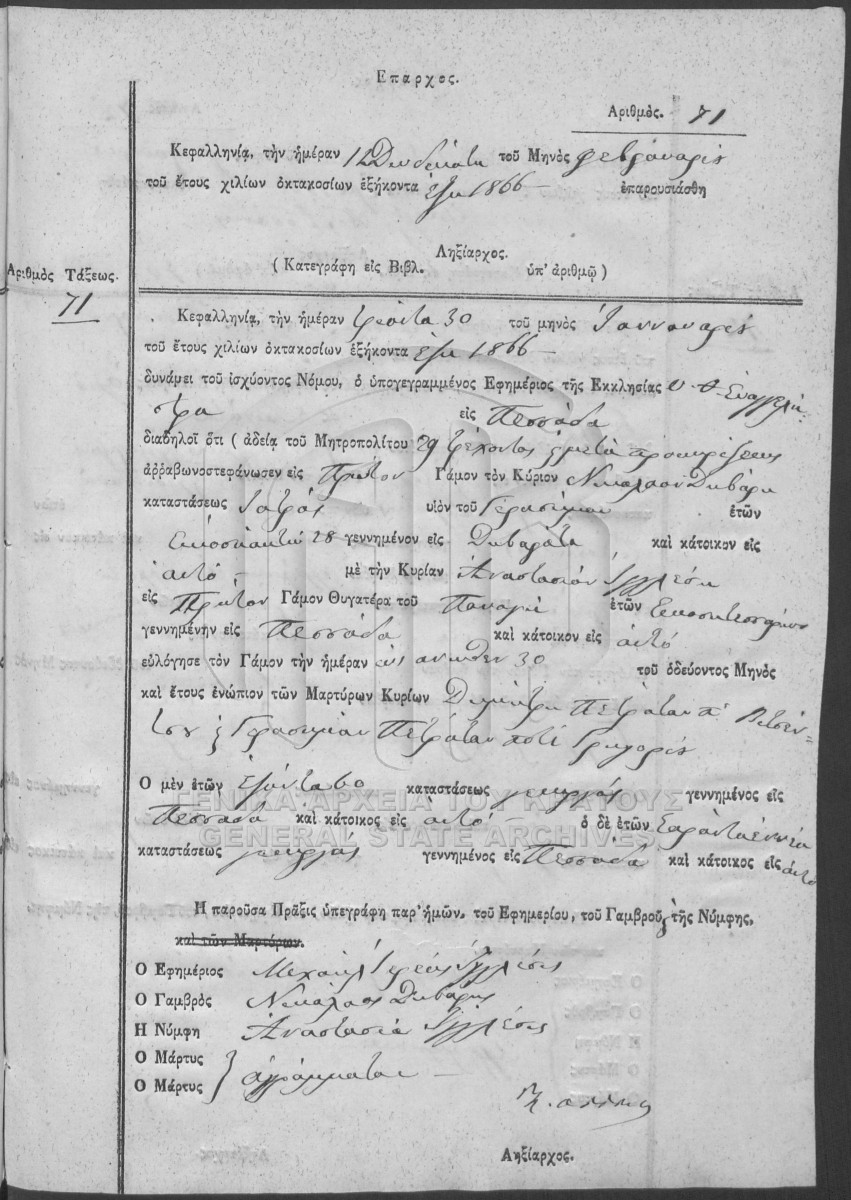 Επαρχος.
Αριθμὸς. 71
Κεφαλληνίᾳ, τὴν ἡμέραν 12 Δωδεκάτη τοῦ Μηνὸς Φεβρουαρίου
τοῦ ἔτους χιλίων ὀκτακοσίων ἑξήκοντα ἕξη 1866 — ἐπαρουσιάσθη
Ληξίαρχος.
( Κατεγράφη εἰς Βιβλ. ὑπ' ἀριθμῷ )
Αριθμὸς Τάξεως.
71
Κεφαλληνίᾳ, τὴν ἡμέραν τριάντα 30 τοῦ μηνὸς Ἰαννουαρίου
τοῦ ἔτους χιλίων ὀκτακοσίων ἑξήκοντα ἕξη 1866 —
δυνάμει τοῦ ἰσχύοντος Νόμου, ὁ ὑπογεγραμμένος Εφημέριος τῆς Εκκλησίας Εὐαγγελί-
στρα εἰς Πεσσάδα
διαδηλοῖ ὅτι ( ἀδείᾳ τοῦ Μητροπολίτου 29 τρέχοντος
ἀῤῥαβωνοστεφάνωσεν εἰς Πρῶτον Γάμον τὸν Κύριον Νικόλαον Διβάρη
καταστάσεως Ἰατρός υἱὸν τοῦ Γερασίμου ἐτῶν
28 γεννημένον εἰς Διβαράτα καὶ κάτοικον εἰς
αὐτό — μὲ τὴν Κυρίαν Ἀναστασίαν Ἰγγλέση
εἰς Πρῶτον Γάμον Θυγατέρα τοῦ Παναγῆ ἐτῶν
γεννημένην εἰς Πεσσάδα καὶ κάτοικον εἰς αὐτό
εὐλόγησε τὸν Γάμον τὴν ἡμέραν ὡς ἄνωθεν 30 τοῦ ὁδεύοντος Μηνὸς
καὶ ἔτους ἐνώπιον τῶν Μαρτύρων Κυρίων Δημήτρη Πετράταν π. Βιτσέν-
τσου Γεράσιμον Πετράταν ποτέ Γρηγορίου
Ο μὲν ἐτῶν Ἑξήντα 60 καταστάσεως γεωργός γεννημένος εἰς
Πεσσάδα καὶ κάτοικος εἰς αὐτό — ὁ δὲ ἐτῶν Σαράντα ἐννέα
καταστάσεως γεωργός γεννημένος εἰς Πεσσάδα καὶ κάτοικος εἰς αὐτό
Η παροῦσα Πρᾶξις ὑπεγράφη παρ' ἡμῶν, τοῦ Εφημερίου, τοῦ Γαμβροῦ, τῆς Νύμφης,
καὶ τῶν Μαρτύρων.
Ο Εφημέριος Μιχαήλ Ἱερεύς Ἰγγλέσις
Ο Γαμβρὸς Νικόλαος Διβάρης
Η Νύμφη Ἀναστασία Ἰγγλέση
Ο Μάρτυς
Ο Μάρτυς ἀγράμματοι —
Ληξίαρχος.
ΓΕΝΙΚΑ ΑΡΧΕΙΑ ΤΟΥ ΚΡΑΤΟΥΣ
GENERAL STATE ARCHIVES